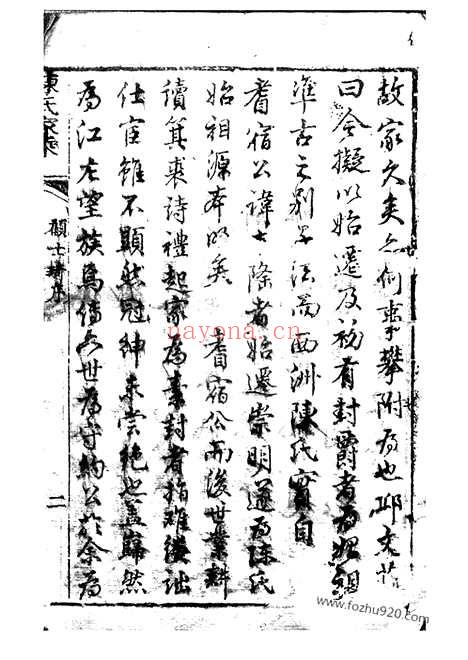 故家久矣亦何事攀附為也邱文莊
曰今擬以始遷及初有封爵者為始祖
準古之別子法而西洲陳氏實自
耆宿公諱士隆者始遷崇明遂為陳氏
始祖源本明矣耆宿公而後世業耕
讀箕裘詩禮起家為素封者指難僂詘
仕宦雖不顯然冠紳未嘗絕也蓋歸然
為江左望族焉傳六世為守約公於余為
陳氏家乘
顧士璉序
二
nayona.cn
www.fozhu920.com